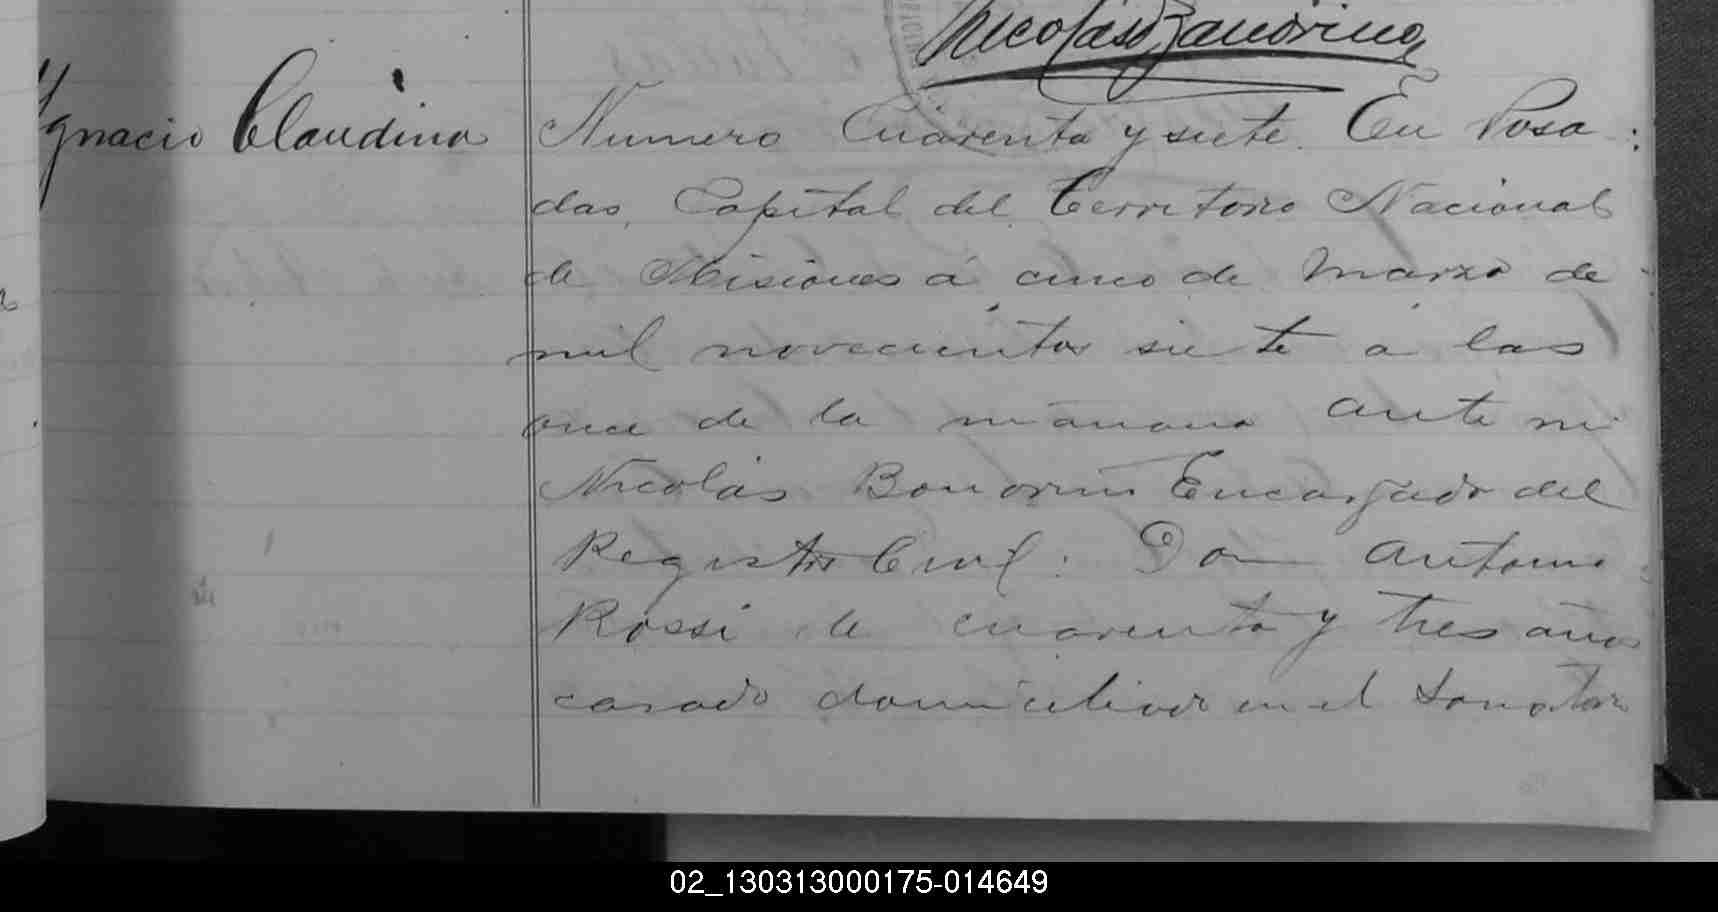 Nicolás Bonorino
Ygnacio Claudino
Numero Cuarenta y siete. En Posa:
das, Capital del Territorio Nacional
de Misiones á cinco de Marzo de
mil novecientos siete a las
once de la mañana ante mi
Nicolás Bonorino Encargado del
Registro Civil: Don Antonio
Rossi de cuarenta y tres años
casado domiciliado en el
02_130313000175-014649